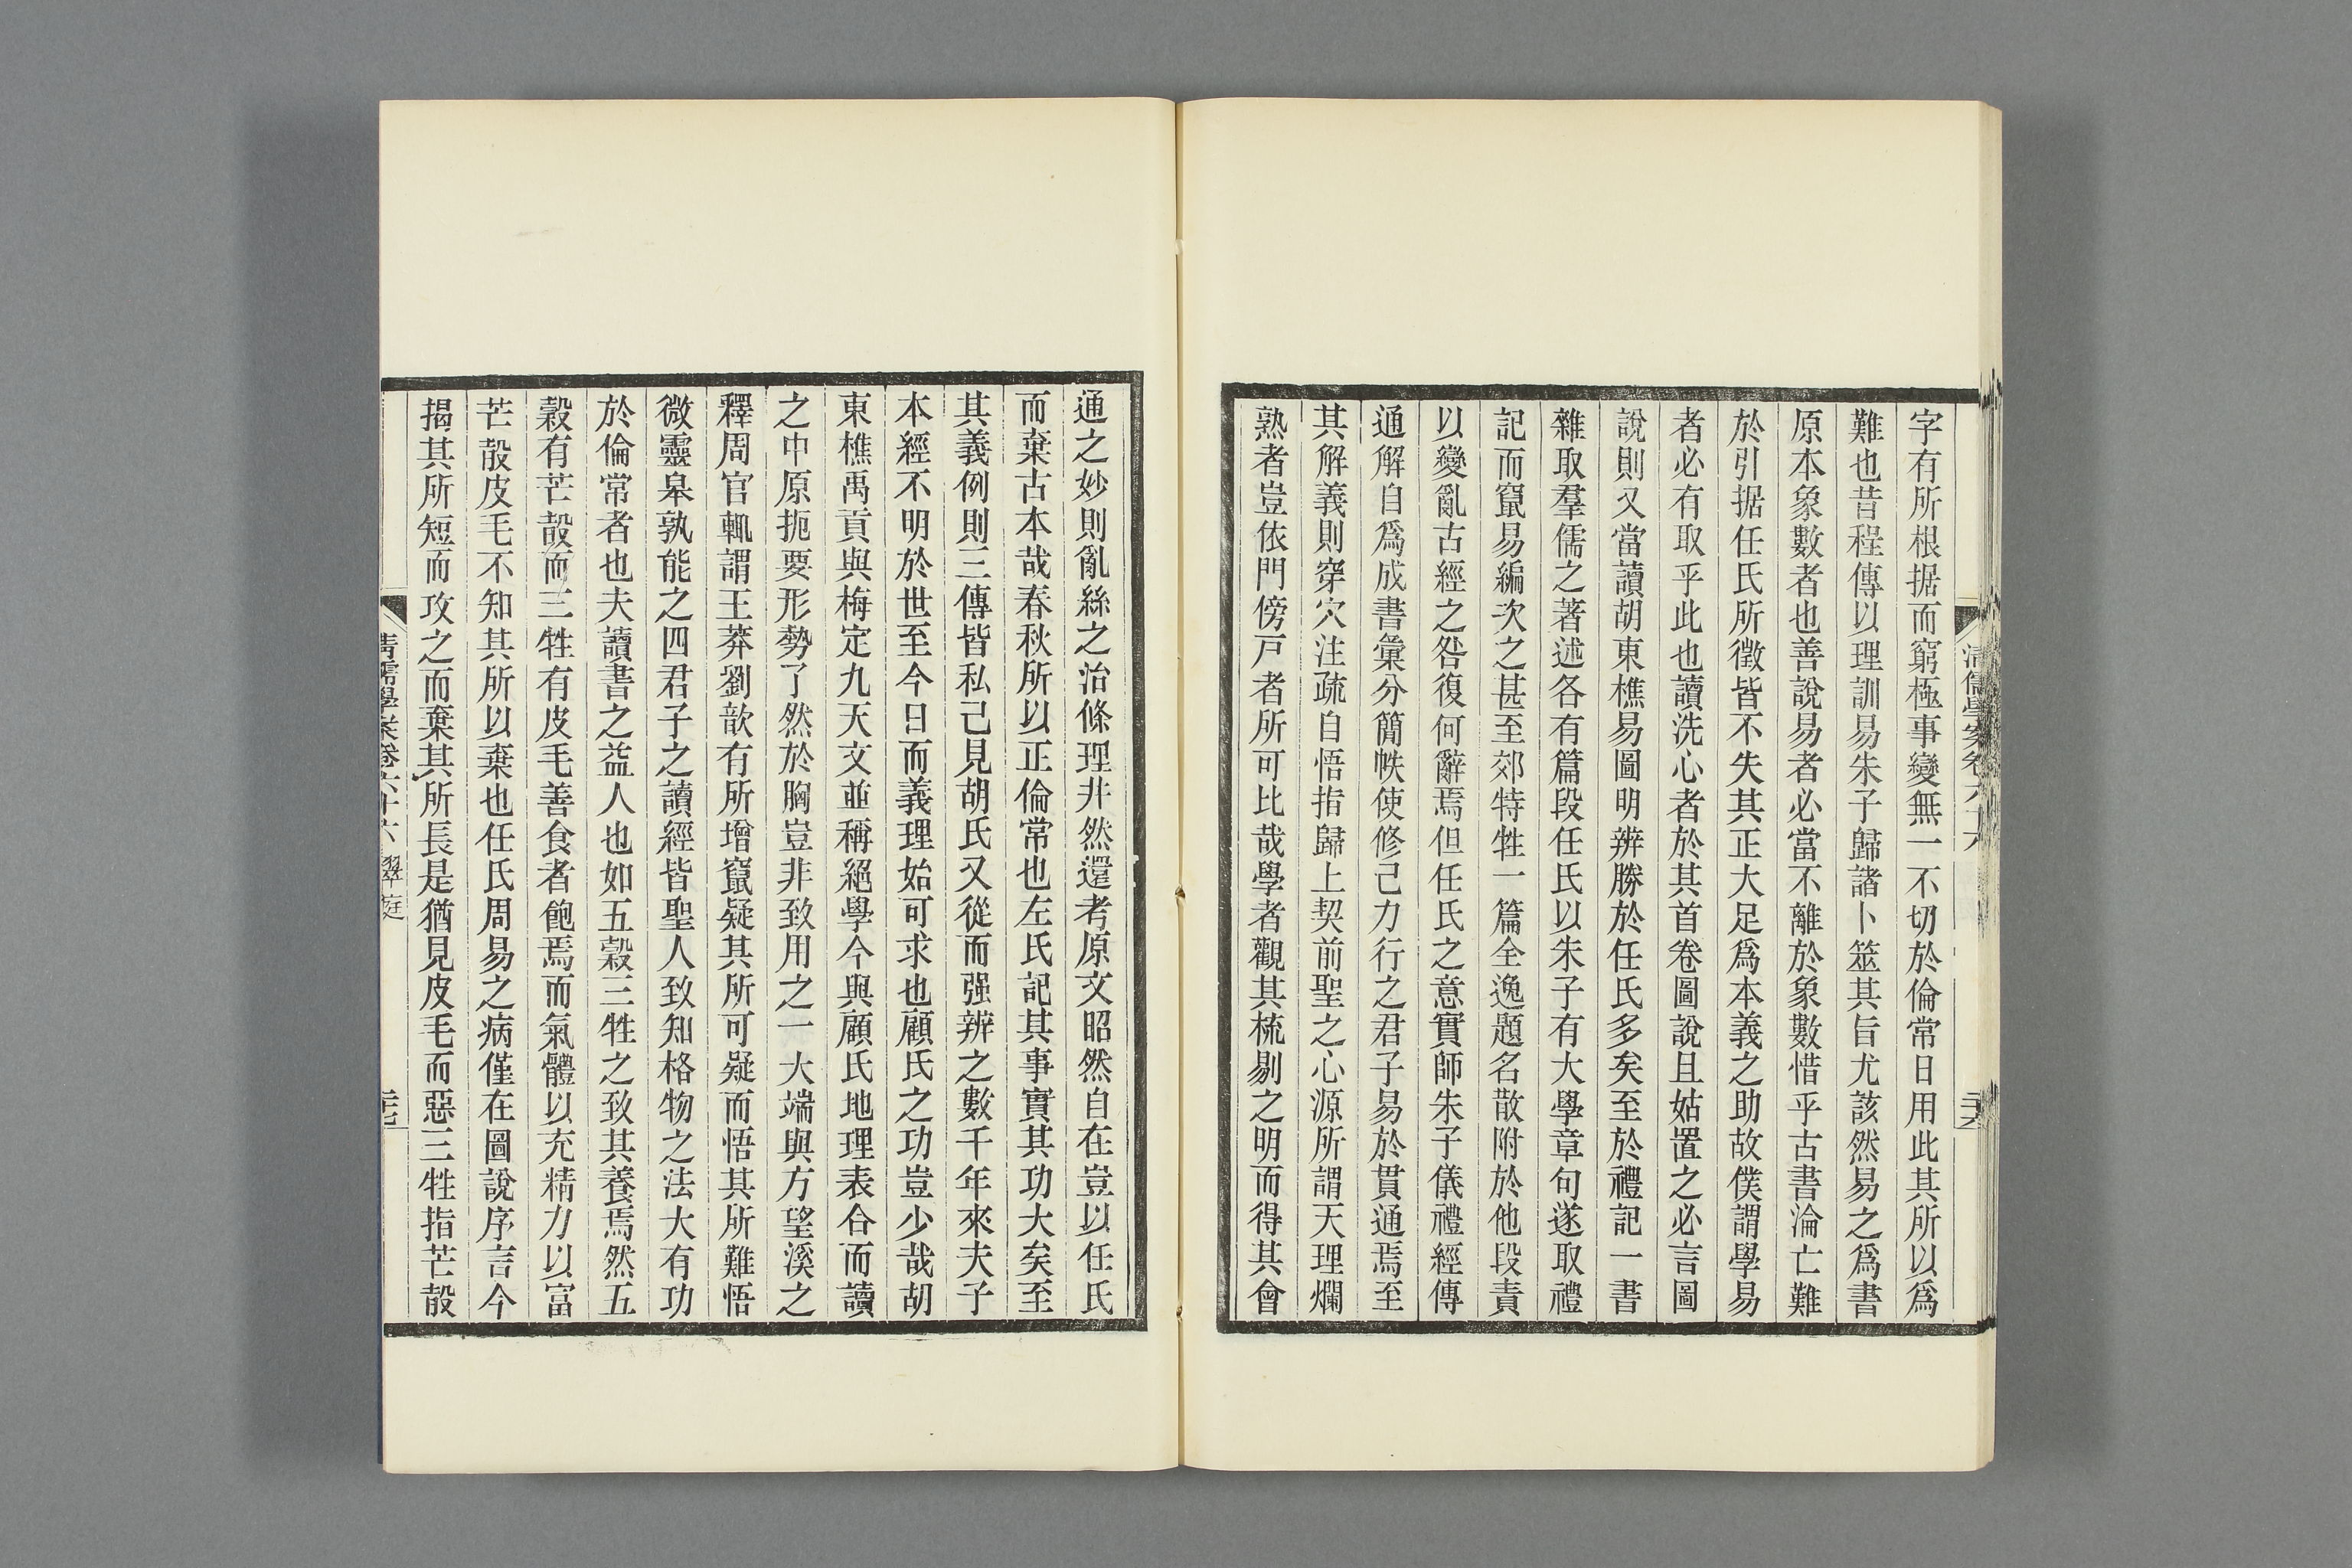 字有所根据而窮極事變無一不切於倫常日用此其所以爲
難也昔程傳以理訓易朱子歸諸卜筮其旨尤該然易之爲書
原本象數者也善說易者必當不離於象數惜乎古書淪亡難
於引据任氏所徵皆不失其正大足爲本義之助故僕謂學易
者必有取乎此也讀洗心者於其首卷圖說且姑置之必言圖
說則又當讀胡東樵易圖明辨勝於任氏多矣至於禮記一書
雜取羣儒之著述各有篇段任氏以朱子有大學章句遂取禮
記而竄易編次之甚至郊特牲一篇全逸題名散附於他段責
以變亂古經之咎復何辭焉但任氏之意實師朱子儀禮經傳
通解自爲成書彙分簡帙使修己力行之君子易於貫通焉至
其解義則穿穴注疏自悟指歸上契前聖之心源所謂天理爛
熟者豈依門傍戸者所可比哉學者觀其梳剔之明而得其會
清儒學案卷六十六
二十六
通之妙則亂絲之治條理井然還考原文昭然自在豈以任氏
而棄古本哉春秋所以正倫常也左氏記其事實其功大矣至
其義例則三傳皆私己見胡氏又從而强辨之數千年來夫子
本經不明於世至今日而義理始可求也顧氏之功豈少哉胡
東樵禹貢與梅定九天文並稱絕學今與顧氏地理表合而讀
之中原扼要形勢了然於胸豈非致用之一大端與方望溪之
釋周官輒謂王莽劉歆有所增竄疑其所可疑而悟其所難悟
微靈皋孰能之四君子之讀經皆聖人致知格物之法大有功
於倫常者也夫讀書之益人也如五穀三牲之致其養焉然五
穀有芒殼而三牲有皮毛善食者飽焉而氣體以充精力以富
芒殼皮毛不知其所以棄也任氏周易之病僅在圖說序言今
揭其所短而攻之而棄其所長是猶見皮毛而惡三牲指芒殼
清儒學案卷六十六 翠庭
二十七